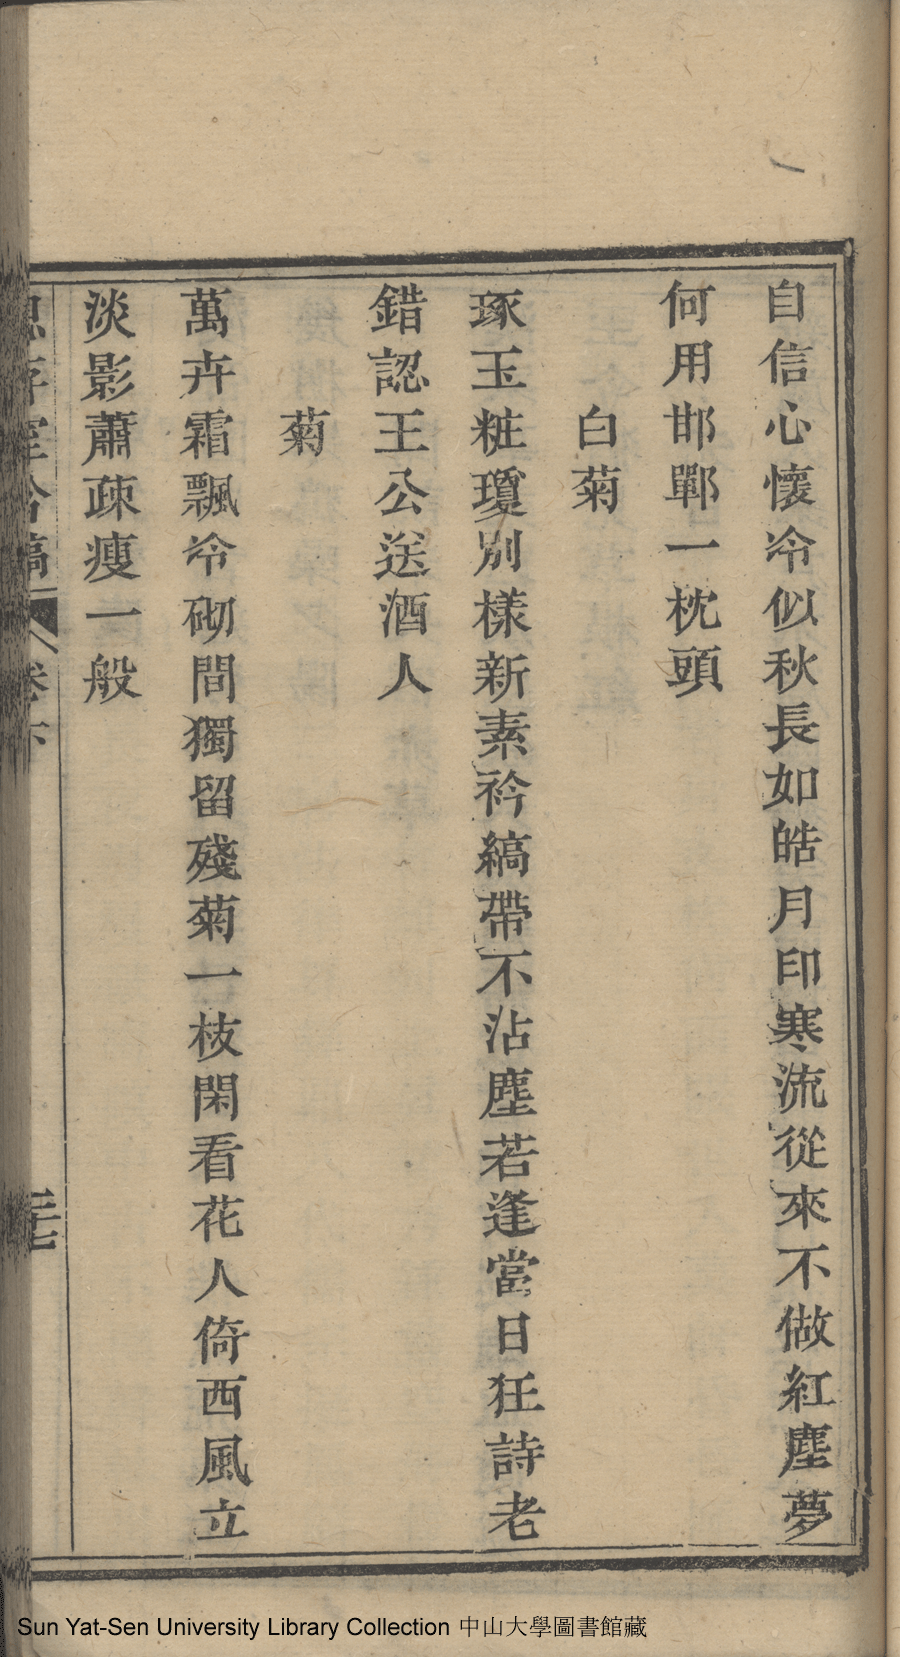 自信心懷冷似秋長如皓月印寒流從來不做紅塵夢
何用邯鄲一枕頭
白菊
琢玉粧瓊別樣新素衿縞帶不沾塵若逢當日狂詩老
錯認王公送酒人
菊
萬卉霜飄冷砌間獨留殘菊一枝閑看花人倚西風立
淡影蕭疎瘦一般
吟稿 卷下
二十七
Sun Yat-Sen University Library Collection 中山大學圖書館藏